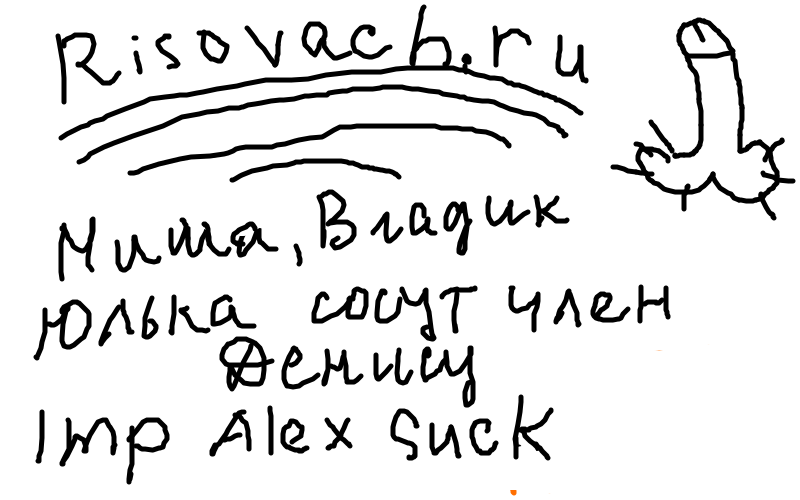 Risovach.ru
Миша, Владик
Юлька сосут член
Денису
Imp Alex Suck